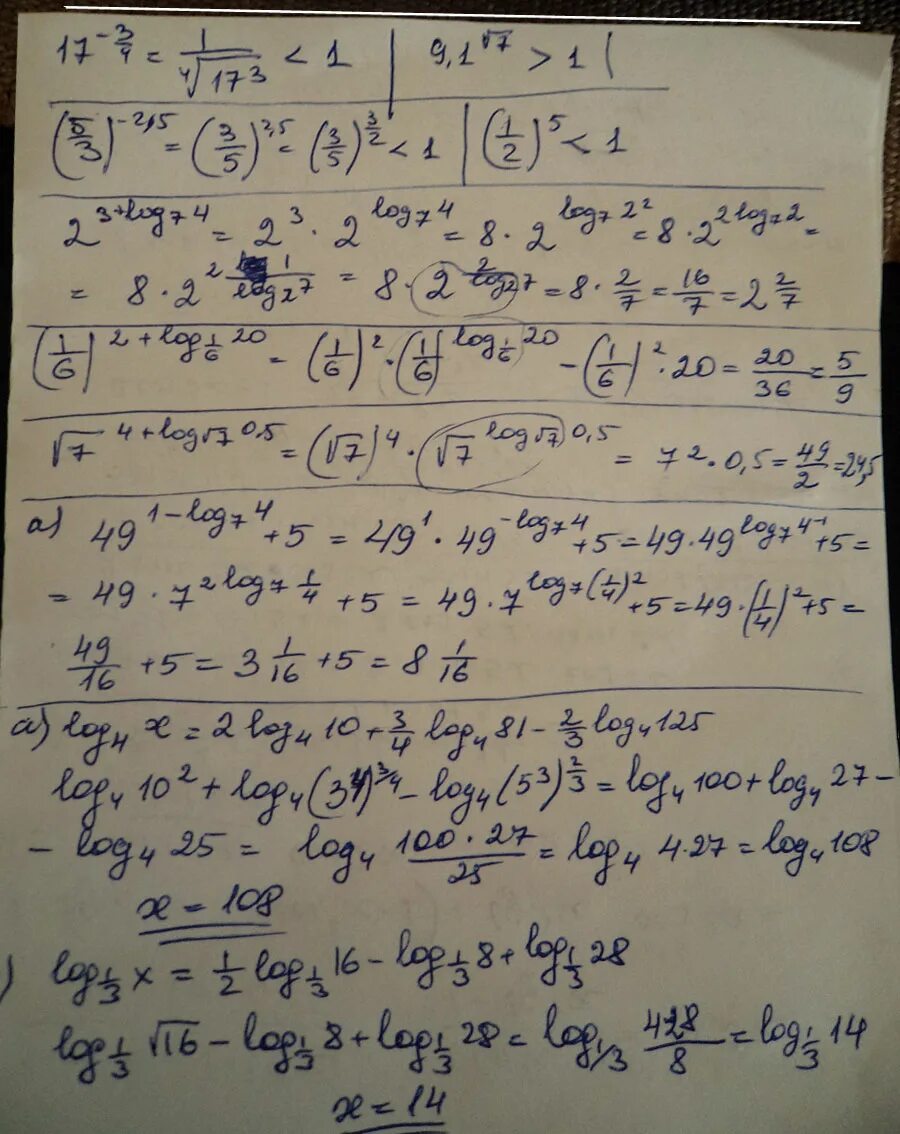 17^(-3/4) = 1/⁴√17³ < 1 | 9,1^√7 > 1 |
(5/3)^(-2,5) = (3/5)^(2,5) = (3/5)^(3/2) < 1 | (1/2)^5 < 1
2^(3+log₇4) = 2³ · 2^(log₇4) = 8 · 2^(log₇2²) = 8 · 2^(2log₇2) =
= 8 · 2^(2 · 1/log₂7) = 8 · 2^(2/log₂7) = 8 · 2/7 = 16/7 = 2 2/7
(1/6)^(2+log_(1/6)20) = (1/6)² · (1/6)^(log_(1/6)20) - (1/6)² · 20 = 20/36 = 5/9
√7^(4+log_√7 0,5) = (√7)⁴ · √7^(log_√7 0,5) = 7² · 0,5 = 49/2 = 24,5
а) 49^(1-log₇4) + 5 = 49¹ · 49^(-log₇4) + 5 = 49 · 49^(log₇4⁻¹) + 5 =
= 49 · 7^(2log₇ 1/4) + 5 = 49 · 7^(log₇(1/4)²) + 5 = 49 · (1/4)² + 5 =
49/16 + 5 = 3 1/16 + 5 = 8 1/16
а) log₄ x = 2 log₄ 10 + 3/4 log₄ 81 - 2/3 log₄ 125
log₄ 10² + log₄ (3⁴)^(3/4) - log₄ (5³)^(2/3) = log₄ 100 + log₄ 27 -
- log₄ 25 = log₄ (100 · 27)/25 = log₄ 4·27 = log₄ 108
x = 108
) log_(1/3) x = 1/2 log_(1/3) 16 - log_(1/3) 8 + log_(1/3) 28
log_(1/3) √16 - log_(1/3) 8 + log_(1/3) 28 = log_(1/3) 4·28/8 = log_(1/3) 14
x = 14